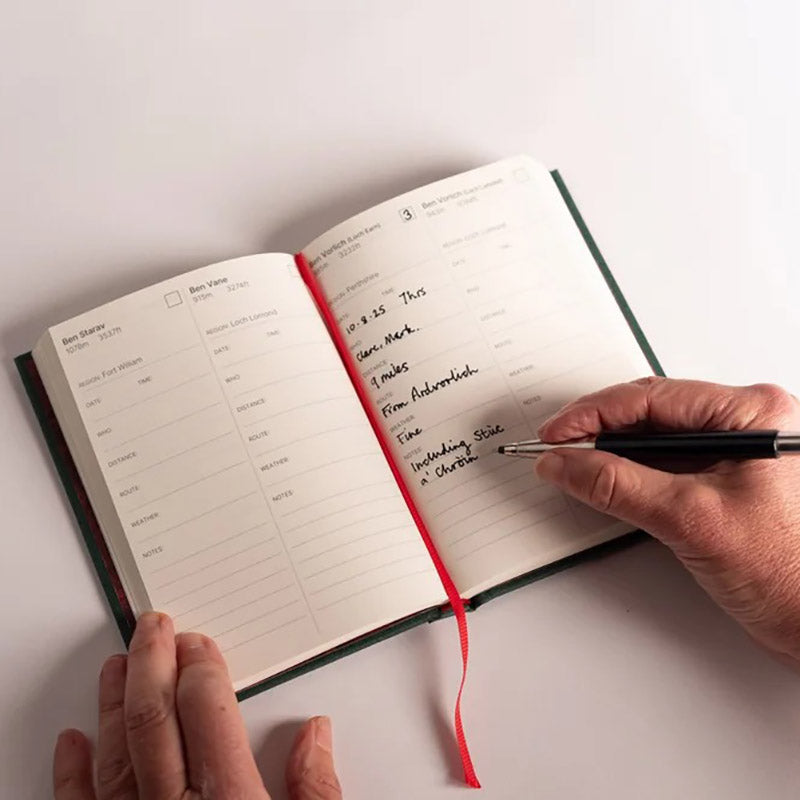 Ben Starav
1078m 3537ft
REGION: Fort William
DATE: TIME:
WHO:
DISTANCE:
ROUTE:
WEATHER:
NOTES:
Ben Vane
915m 3274ft
REGION: Loch Lomond
DATE: TIME:
WHO:
DISTANCE:
ROUTE:
WEATHER:
NOTES:
Ben Vorlich (Loch Earn)
3
3232ft
REGION: Perthshire
DATE: TIME:
10.8.25 7hrs
WHO
Clare, Mark.
DISTANCE:
9 miles
ROUTE:
From Ardvorlich
WEATHER:
Fine
NOTES:
Including Stùc
a' Chroin
Ben Vorlich (Loch Lomond)
943m
REGION: Loch Lomond
DATE: TIME:
WHO:
DISTANCE:
ROUTE:
WEATHER:
NOTES: